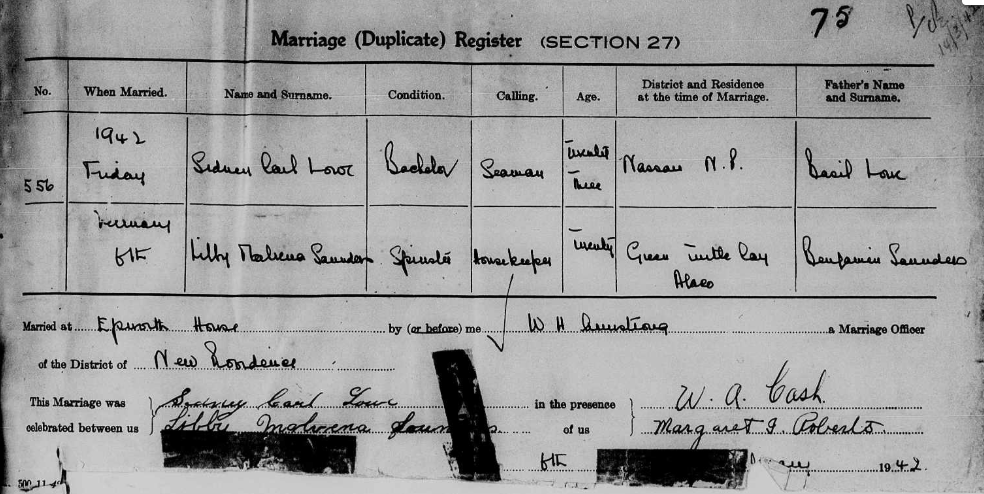 75
Marriage (Duplicate) Register (SECTION 27)
No. When Married. Name and Surname. Condition. Calling. Age. District and Residence at the time of Marriage. Father's Name and Surname.
556 1942 Friday Sidney Carl Lowe Bachelor Seaman Twenty Three Nassau N.P. Basil Lowe
6th Libby Malvena Saunders Spinster Housekeeper Twenty Green Turtle Cay Abaco Benjamin Saunders
Married at Epworth House by (or before) me W H Armstrong a Marriage Officer
of the District of New Providence
This Marriage was Sidney Carl Lowe in the presence W. A. Cash.
celebrated between us Libby Malvena of us Margaret J. Roberts
6th 1942